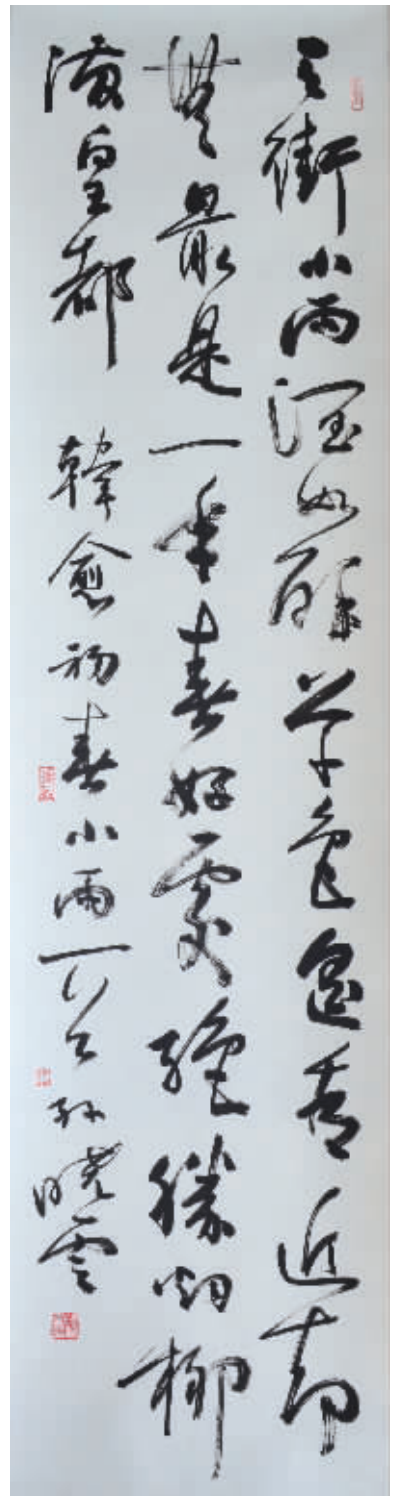 天街小雨潤如酥草色遙看近却
無最是一年春好處絕勝烟柳
滿皇都 韓愈初春小雨一首 孫曉雲